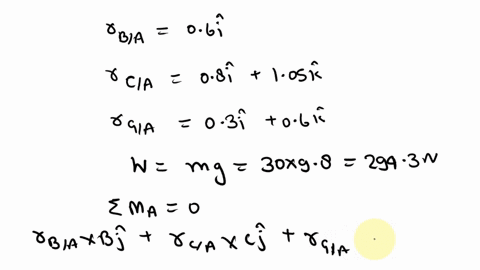 r_{B/A} = 0.6î
r_{C/A} = 0.8î + 1.05k̂
r_{G/A} = 0.3î + 0.6k̂
W = mg = 30x9.8 = 294.3 N
Σ M_A = 0
r_{B/A} x Bĵ + r_{C/A} x Cĵ + r_{G/A}